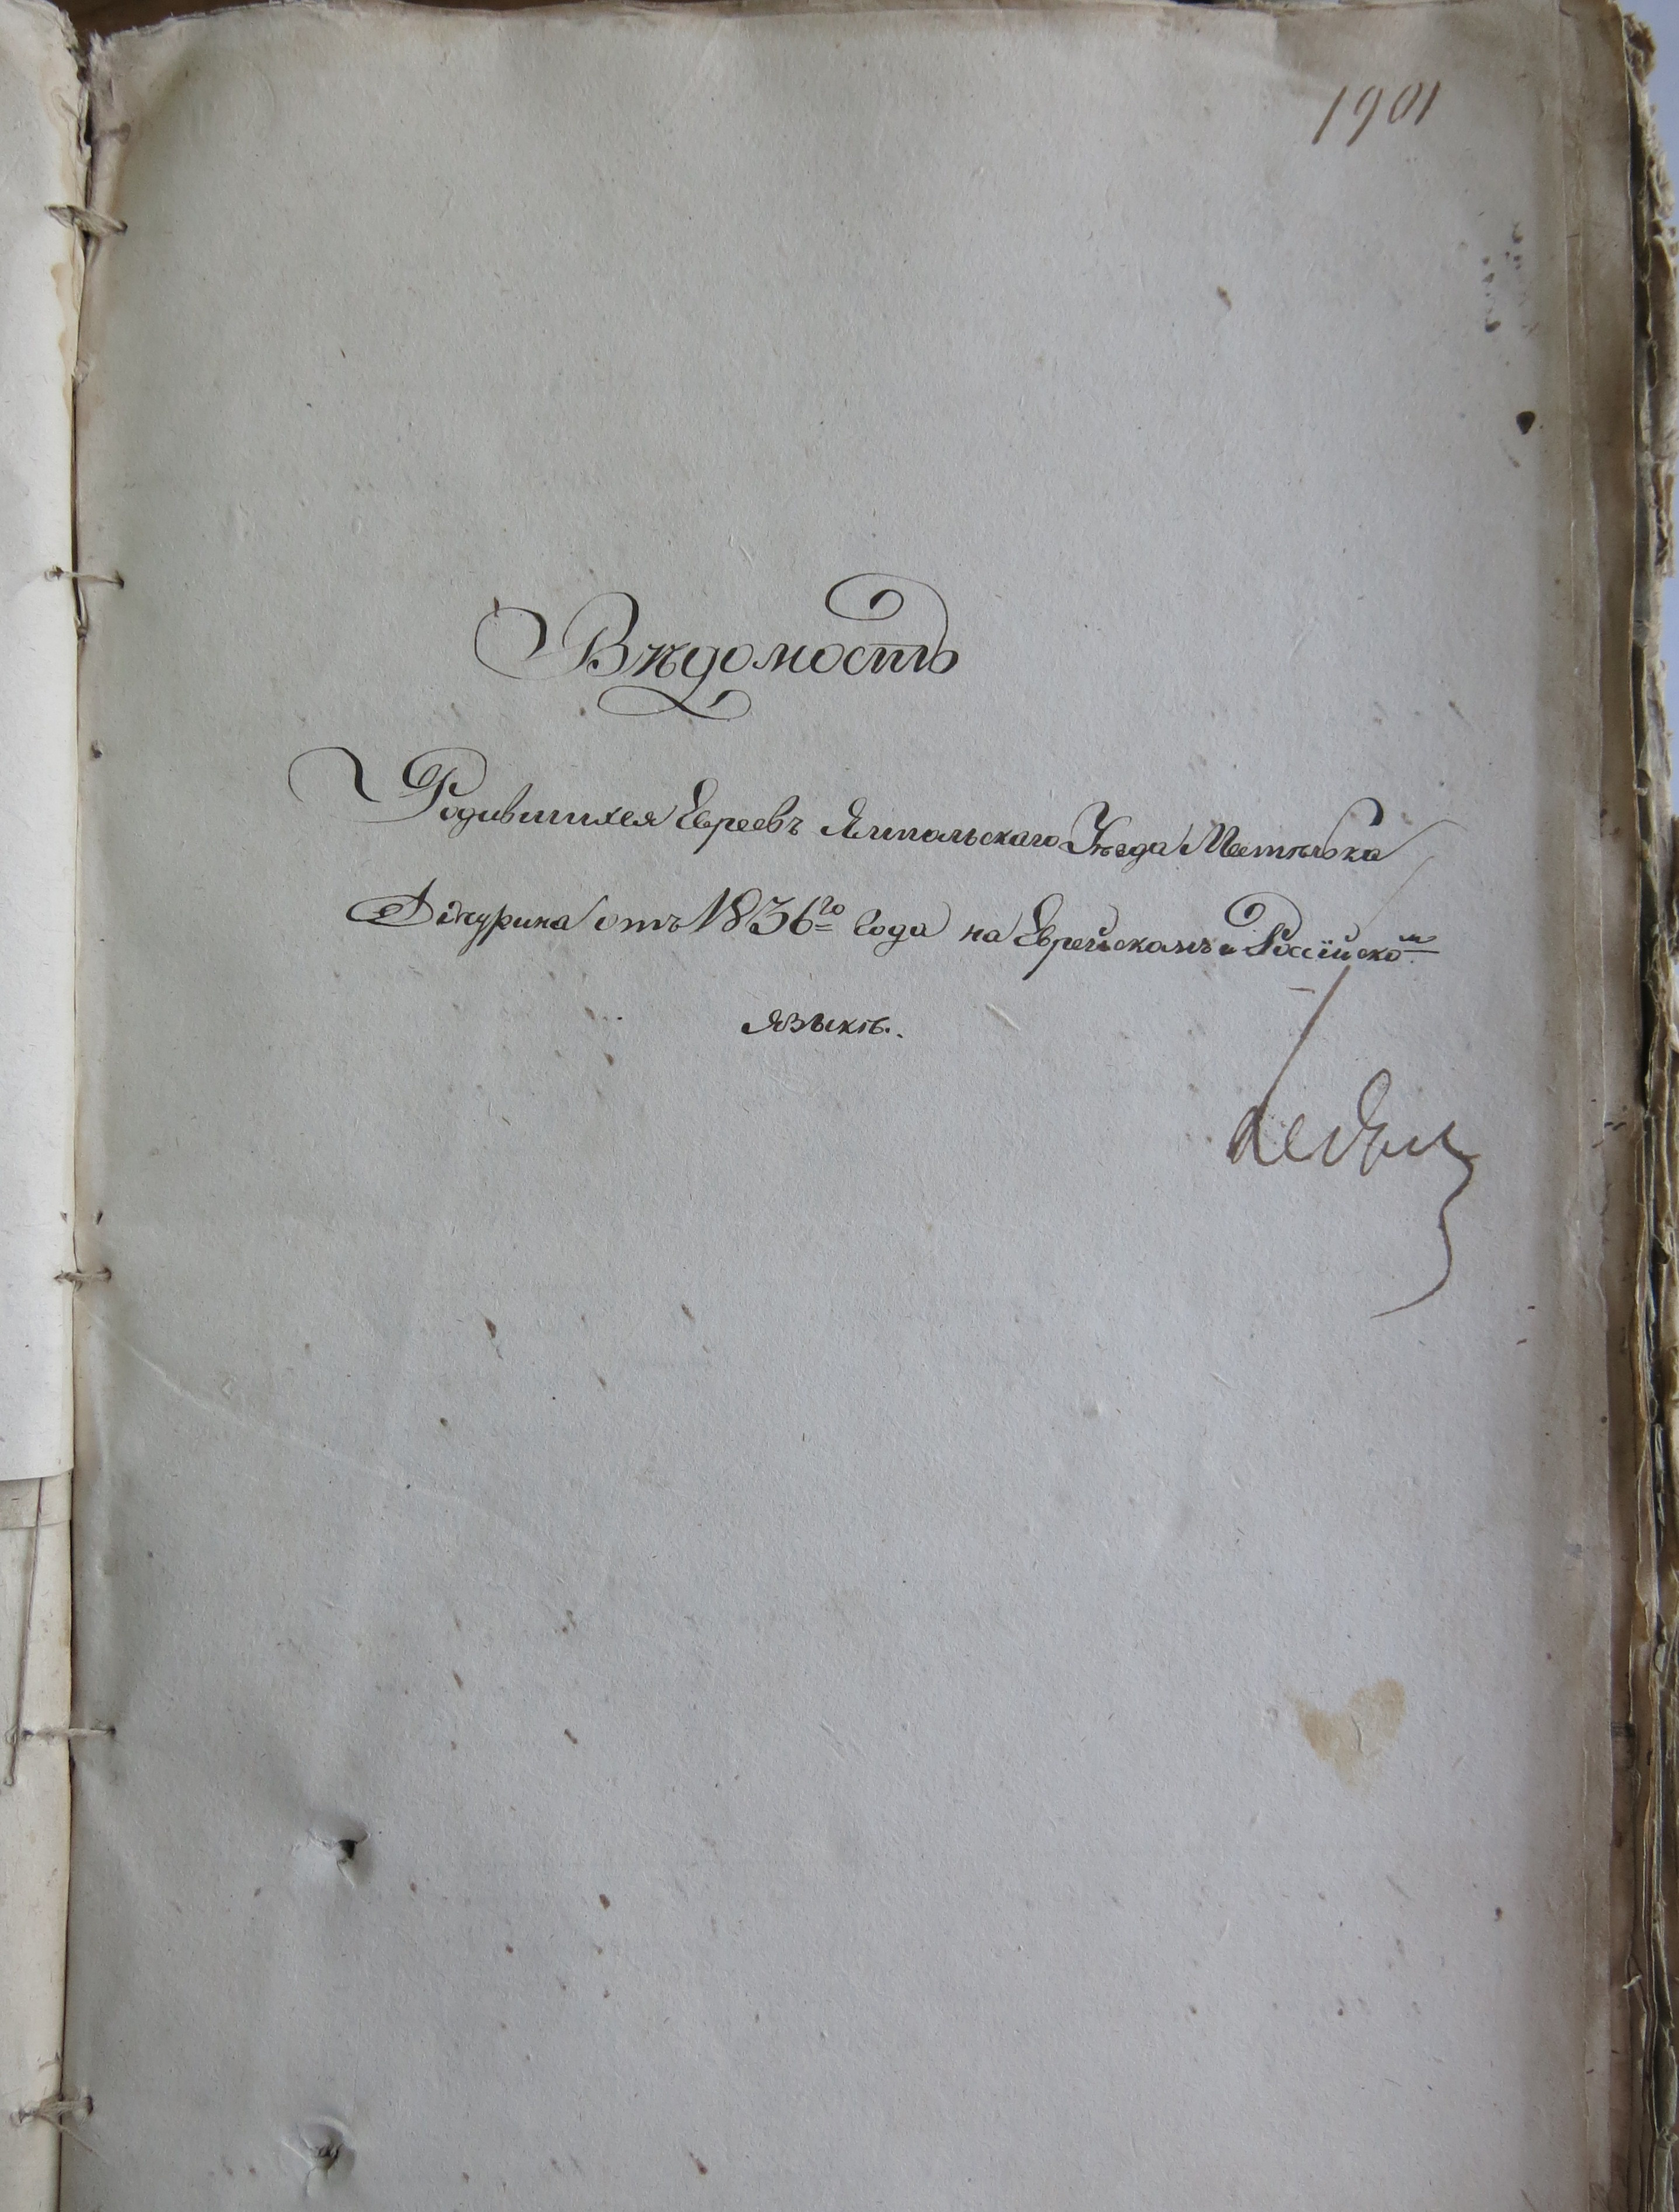 1901
Вѣдомость
Родившихся Евреевъ Ямпольскаго Уѣзда Мѣстѣчька
Дзыгурина отъ 1836го года на Еврейскомъ и Россійском
языкѣ.